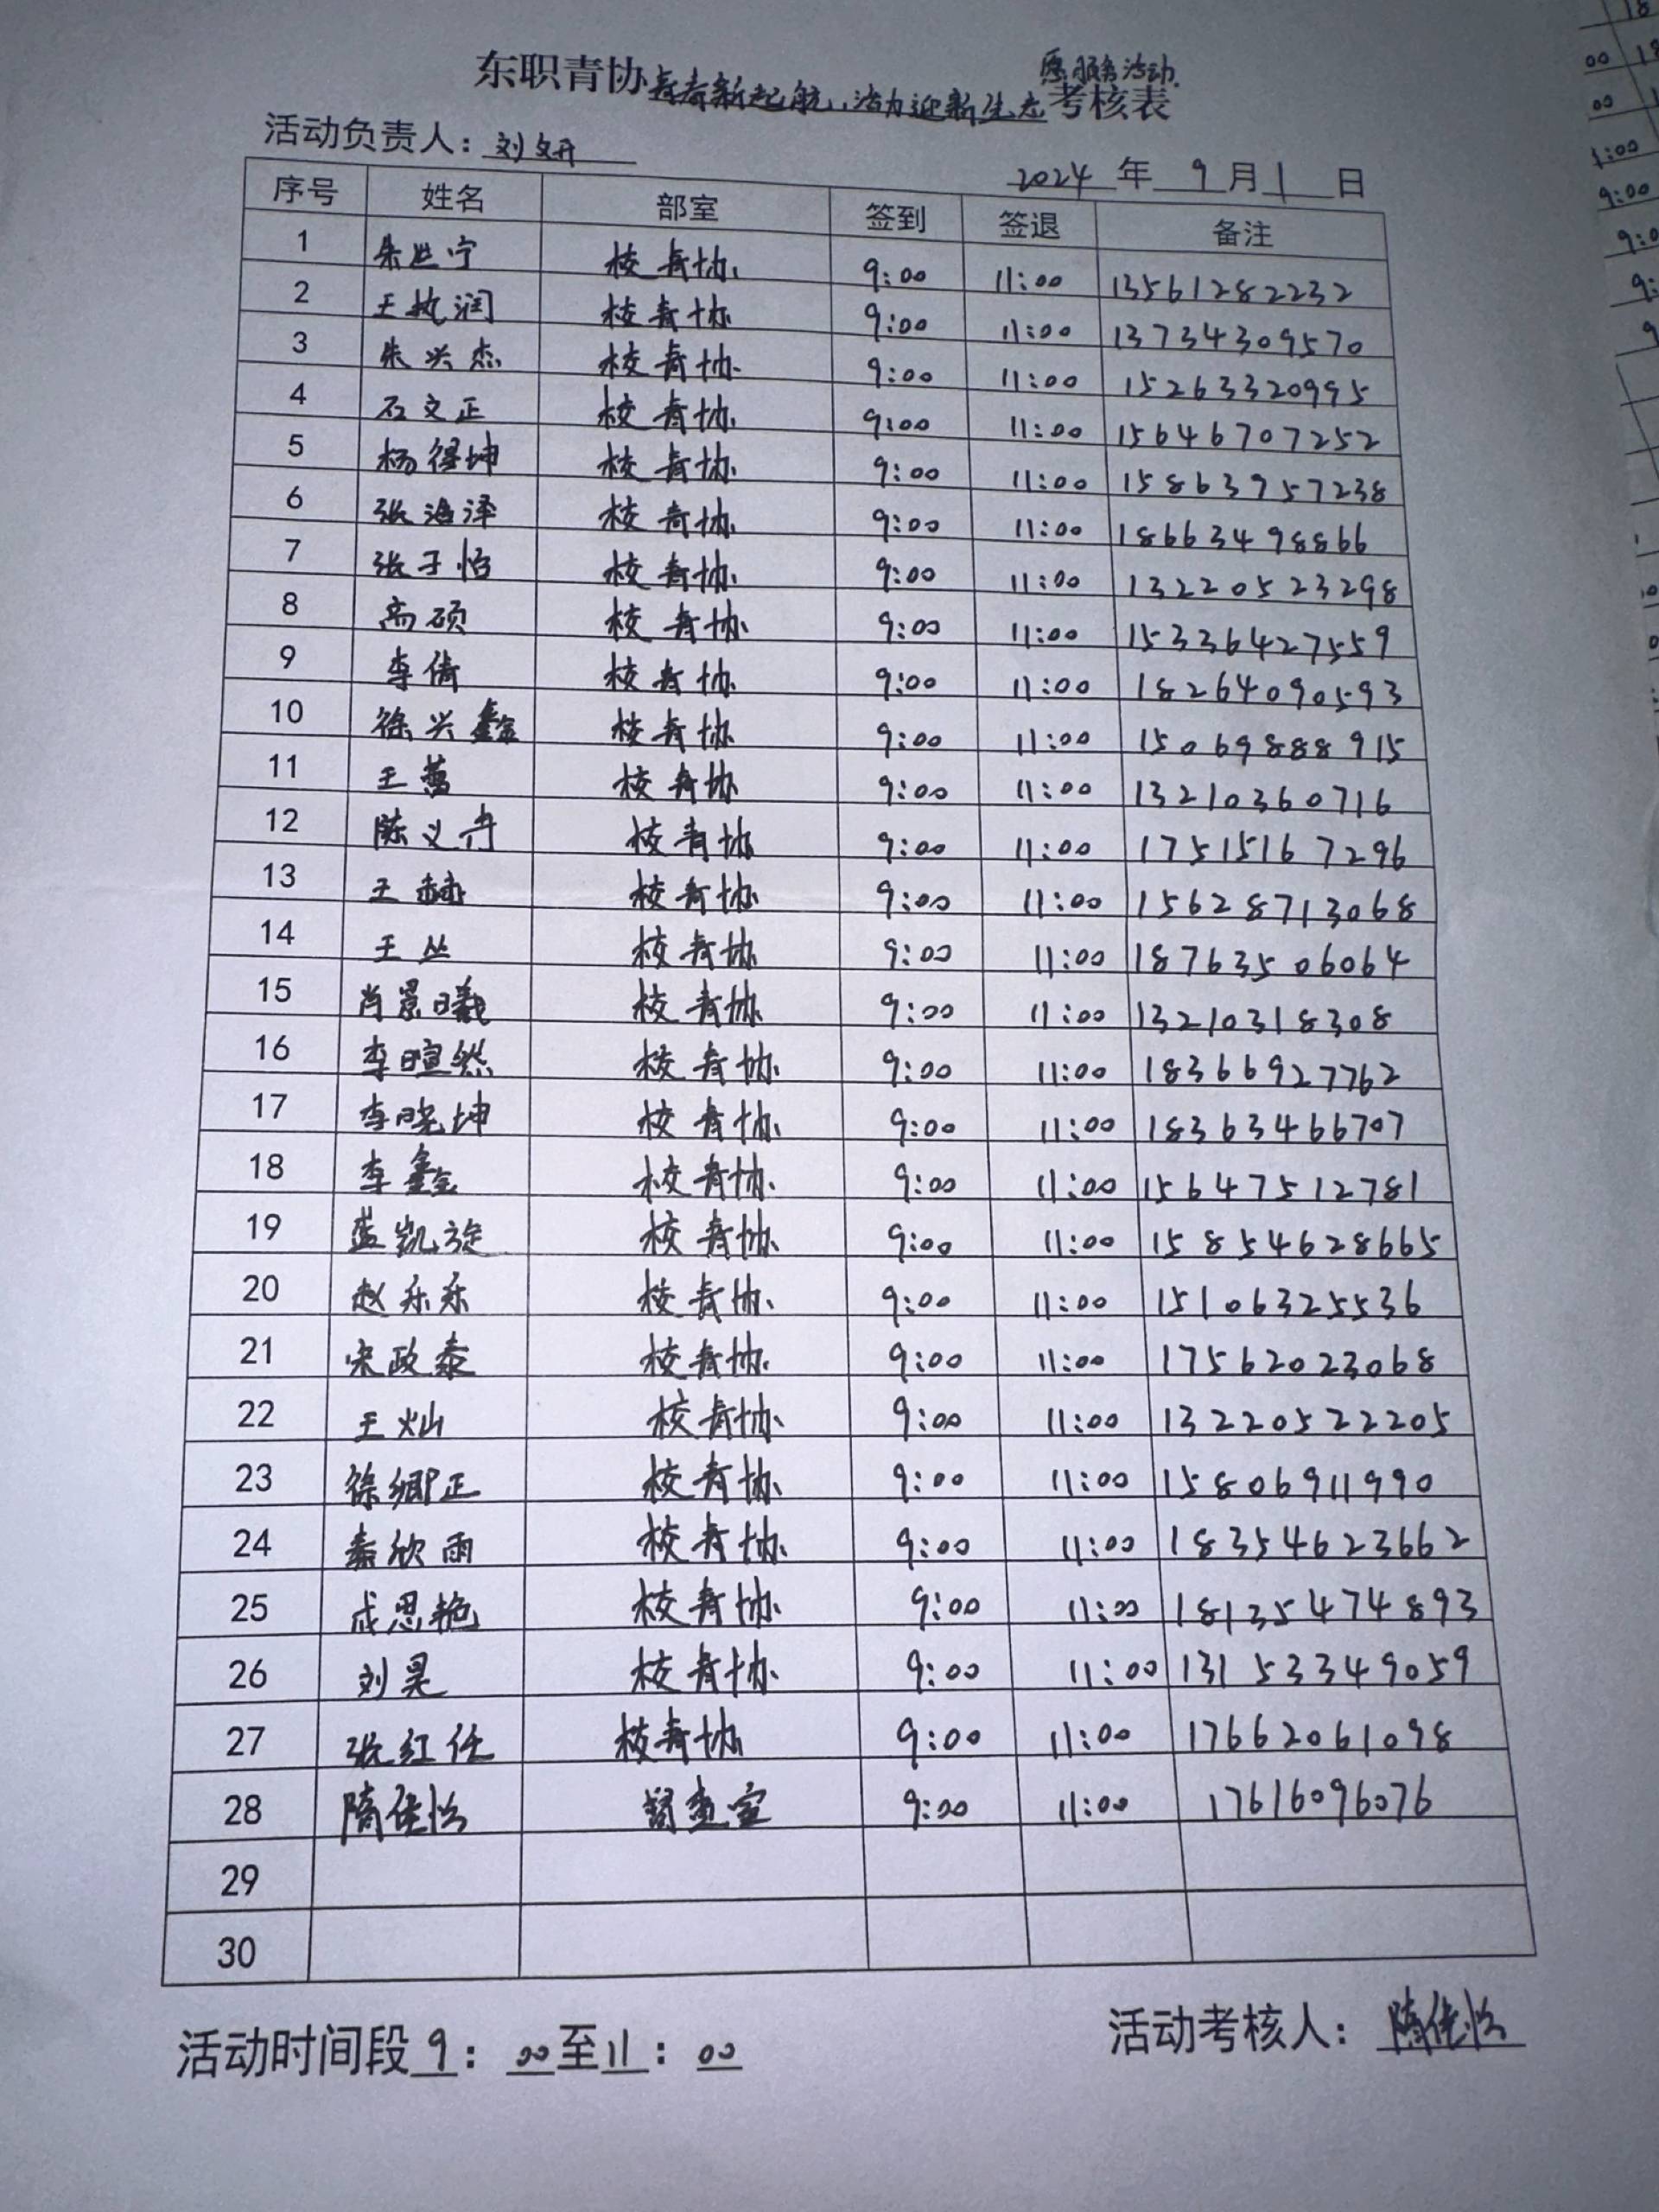 愿服务活动
东职青协青春新起航,活力迎新生志考核表
活动负责人:刘妍
2024年9月1日
序号 姓名 部室 签到 签退 备注
1 朱世宁 校青协 9:00 11:00 13561282232
2 王执润 校青协 9:00 11:00 13734309570
3 朱兴杰 校青协 9:00 11:00 15263320995
4 石文正 校青协 9:00 11:00 15646707252
5 杨径坤 校青协 9:00 11:00 15863957238
6 张海泽 校青协 9:00 11:00 18663498866
7 张子怡 校青协 9:00 11:00 13220523298
8 高硕 校青协 9:00 11:00 15336427559
9 李倩 校青协 9:00 11:00 18264090593
10 徐兴鑫 校青协 9:00 11:00 15069888915
11 王 校青协 9:00 11:00 13210360716
12 陈义丹 校青协 9:00 11:00 17515167296
13 王赫 校青协 9:00 11:00 15628713068
14 王丛 校青协 9:00 11:00 18763506064
15 肖景曦 校青协 9:00 11:00 13210318308
16 李暄然 校青协 9:00 11:00 18366927762
17 李晓坤 校青协 9:00 11:00 18363466707
18 李鑫 校青协 9:00 11:00 15647512781
19 蓝凯旋 校青协 9:00 11:00 15854628665
20 赵乐乐 校青协 9:00 11:00 15106325536
21 宋政泰 校青协 9:00 11:00 17562023068
22 王灿 校青协 9:00 11:00 13220522205
23 徐卿正 校青协 9:00 11:00 15806911990
24 秦欣雨 校青协 9:00 11:00 18354623662
25 成思艳 校青协 9:00 11:00 18135474893
26 刘昊 校青协 9:00 11:00 13153349059
27 张红任 校青协 9:00 11:00 17662061098
28 隋佳怡 督查室 9:00 11:00 17616096076
29
30
活动时间段9:00至11:00
活动考核人:隋佳怡